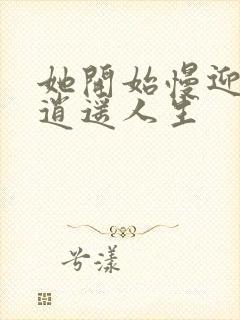 她開始慢迎
逍遥人生
兮漾